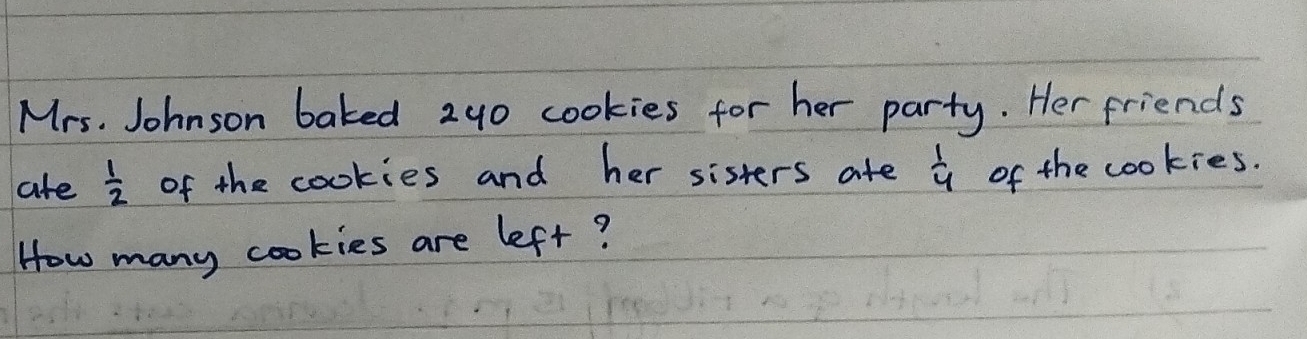 Mrs. Johnson baked 240 cookies for her party. Her friends
ate 1/2 of the cookies and her sisters ate 1/4 of the cookies.
How many cookies are left?